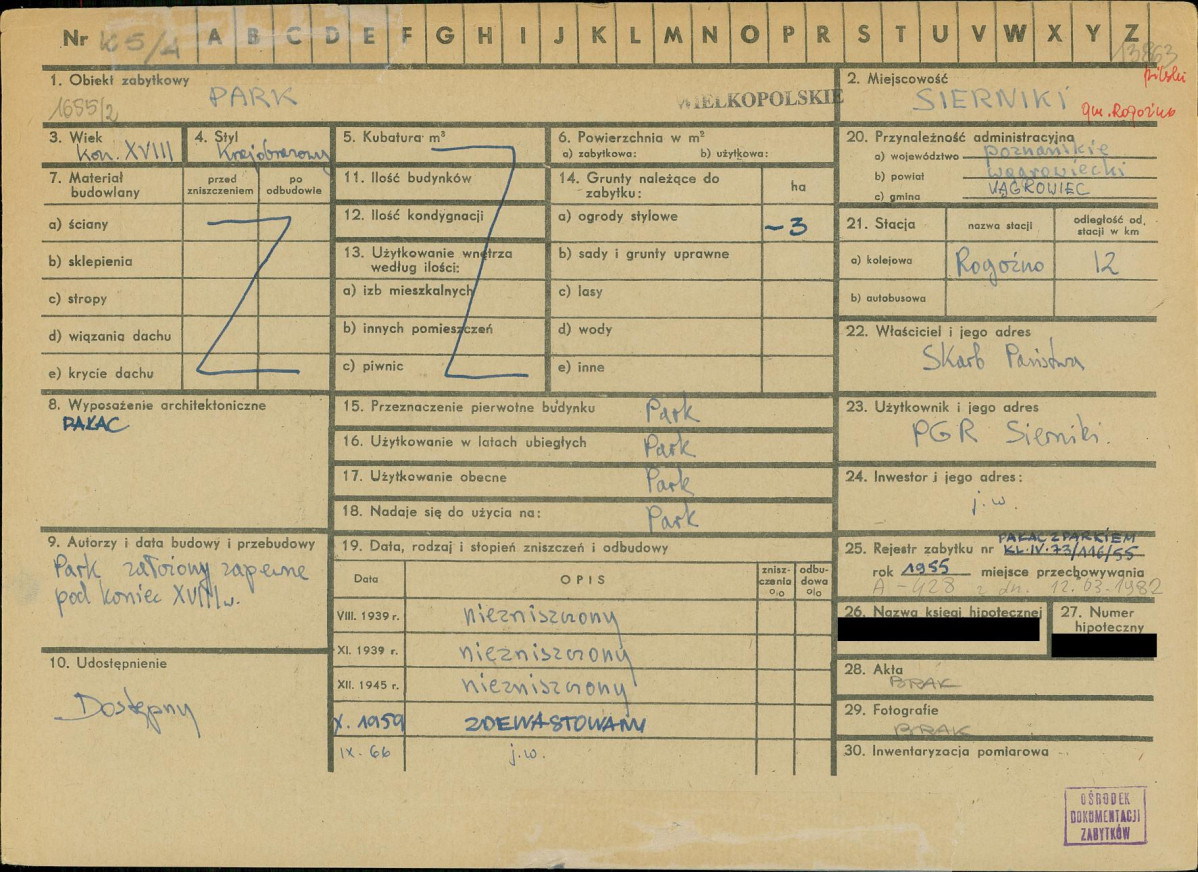 Nr K5/A A B C D E F G H I J K L M N O P R S T U V W X Y Z
13863
1. Obiekt zabytkowy
PARK
1655/2
WIELKOPOLSKIE
2. Miejscowość
pilski
SIERNIKI
gm. Rogoźno
3. Wiek
Kon. XVIII
4. Styl
Krajobrazowy
5. Kubatura m³
6. Powierzchnia w m²
a) zabytkowa: b) użytkowa:
7. Materiał budowlany
przed zniszczeniem
po odbudowie
a) ściany
b) sklepienia
c) stropy
d) wiązania dachu
e) krycie dachu
11. Ilość budynków
12. Ilość kondygnacji
13. Użytkowanie wnętrza
według ilości:
a) izb mieszkalnych
b) innych pomieszczeń
c) piwnic
14. Grunty należące do
zabytku:
ha
a) ogrody stylowe
~3
b) sady i grunty uprawne
c) lasy
d) wody
e) inne
20. Przynależność administracyjna
a) województwo poznańskie
b) powiat wągrowiecki
c) gmina WĄGROWIEC
21. Stacja
nazwa stacji
odległość od.
stacji w km
a) kolejowa Rogoźno 12
b) autobusowa
22. Właściciel i jego adres
Skarb Państwa
8. Wyposażenie architektoniczne
PAŁAC
15. Przeznaczenie pierwotne budynku Park
16. Użytkowanie w latach ubiegłych Park
17. Użytkowanie obecne Park
18. Nadaje się do użycia na: Park
23. Użytkownik i jego adres
PGR Sierniki.
24. Inwestor i jego adres:
j.w.
9. Autorzy i data budowy i przebudowy
Park założony zapewne
pod koniec XVIII w.
10. Udostępnienie
Dostępny
19. Data, rodzaj i stopień zniszczeń i odbudowy
Data
OPIS
znisz-
czenia
%
odbu-
dowa
%
VIII. 1939 r. niezniszczony
XI. 1939 r. niezniszczony
XII. 1945 r. niezniszczony
X. 1959 ZDEWASTOWANY
IX. 66 j.w.
PAŁAC Z PARKIEM
25. Rejestr zabytku nr KL.IV-73/116/55
rok 1955 miejsce przechowywania
A-428 z dn. 12.03.1982
26. Nazwa księgi hipotecznej
27. Numer
hipoteczny
28. Akta
BRAK
29. Fotografie
BRAK
30. Inwentaryzacja pomiarowa
OŚRODEK
DOKUMENTACJI
ZABYTKÓW